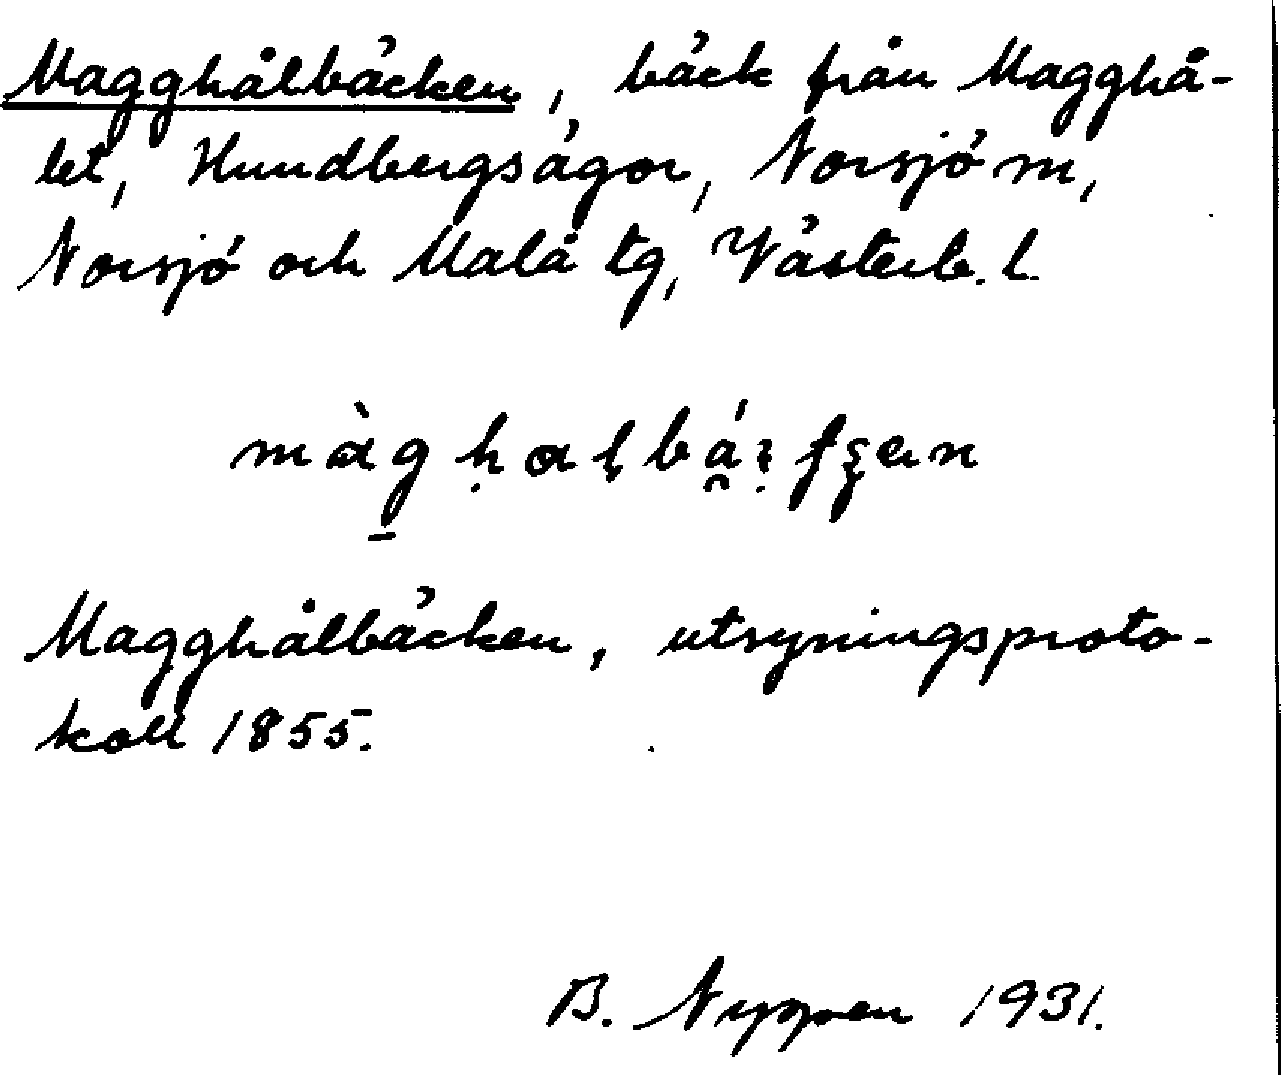 Magghålbäcken, bäck från Magghå-
let, Hundbergsägor, Norsjö sn,
Norsjö och Malå tg, Västerb. l.
Magghålbäcken, utsyningsproto-
koll 1855.
B. Nyppen 1931.